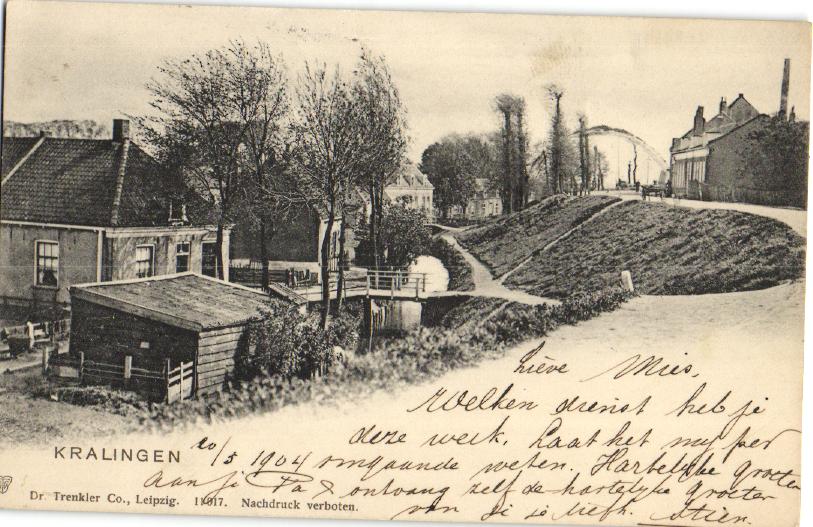 Lieve Mies,
Welken dienst heb je
deze week. Laat het mij per
KRALINGEN 20/5 1904 omgaande weten. Hartelijke groeten
aan je Pa & ontvang zelf de hartelijke groeten
van je je liefh. Stien.
Dr. Trenkler Co., Leipzig. 11017. Nachdruck verboten.